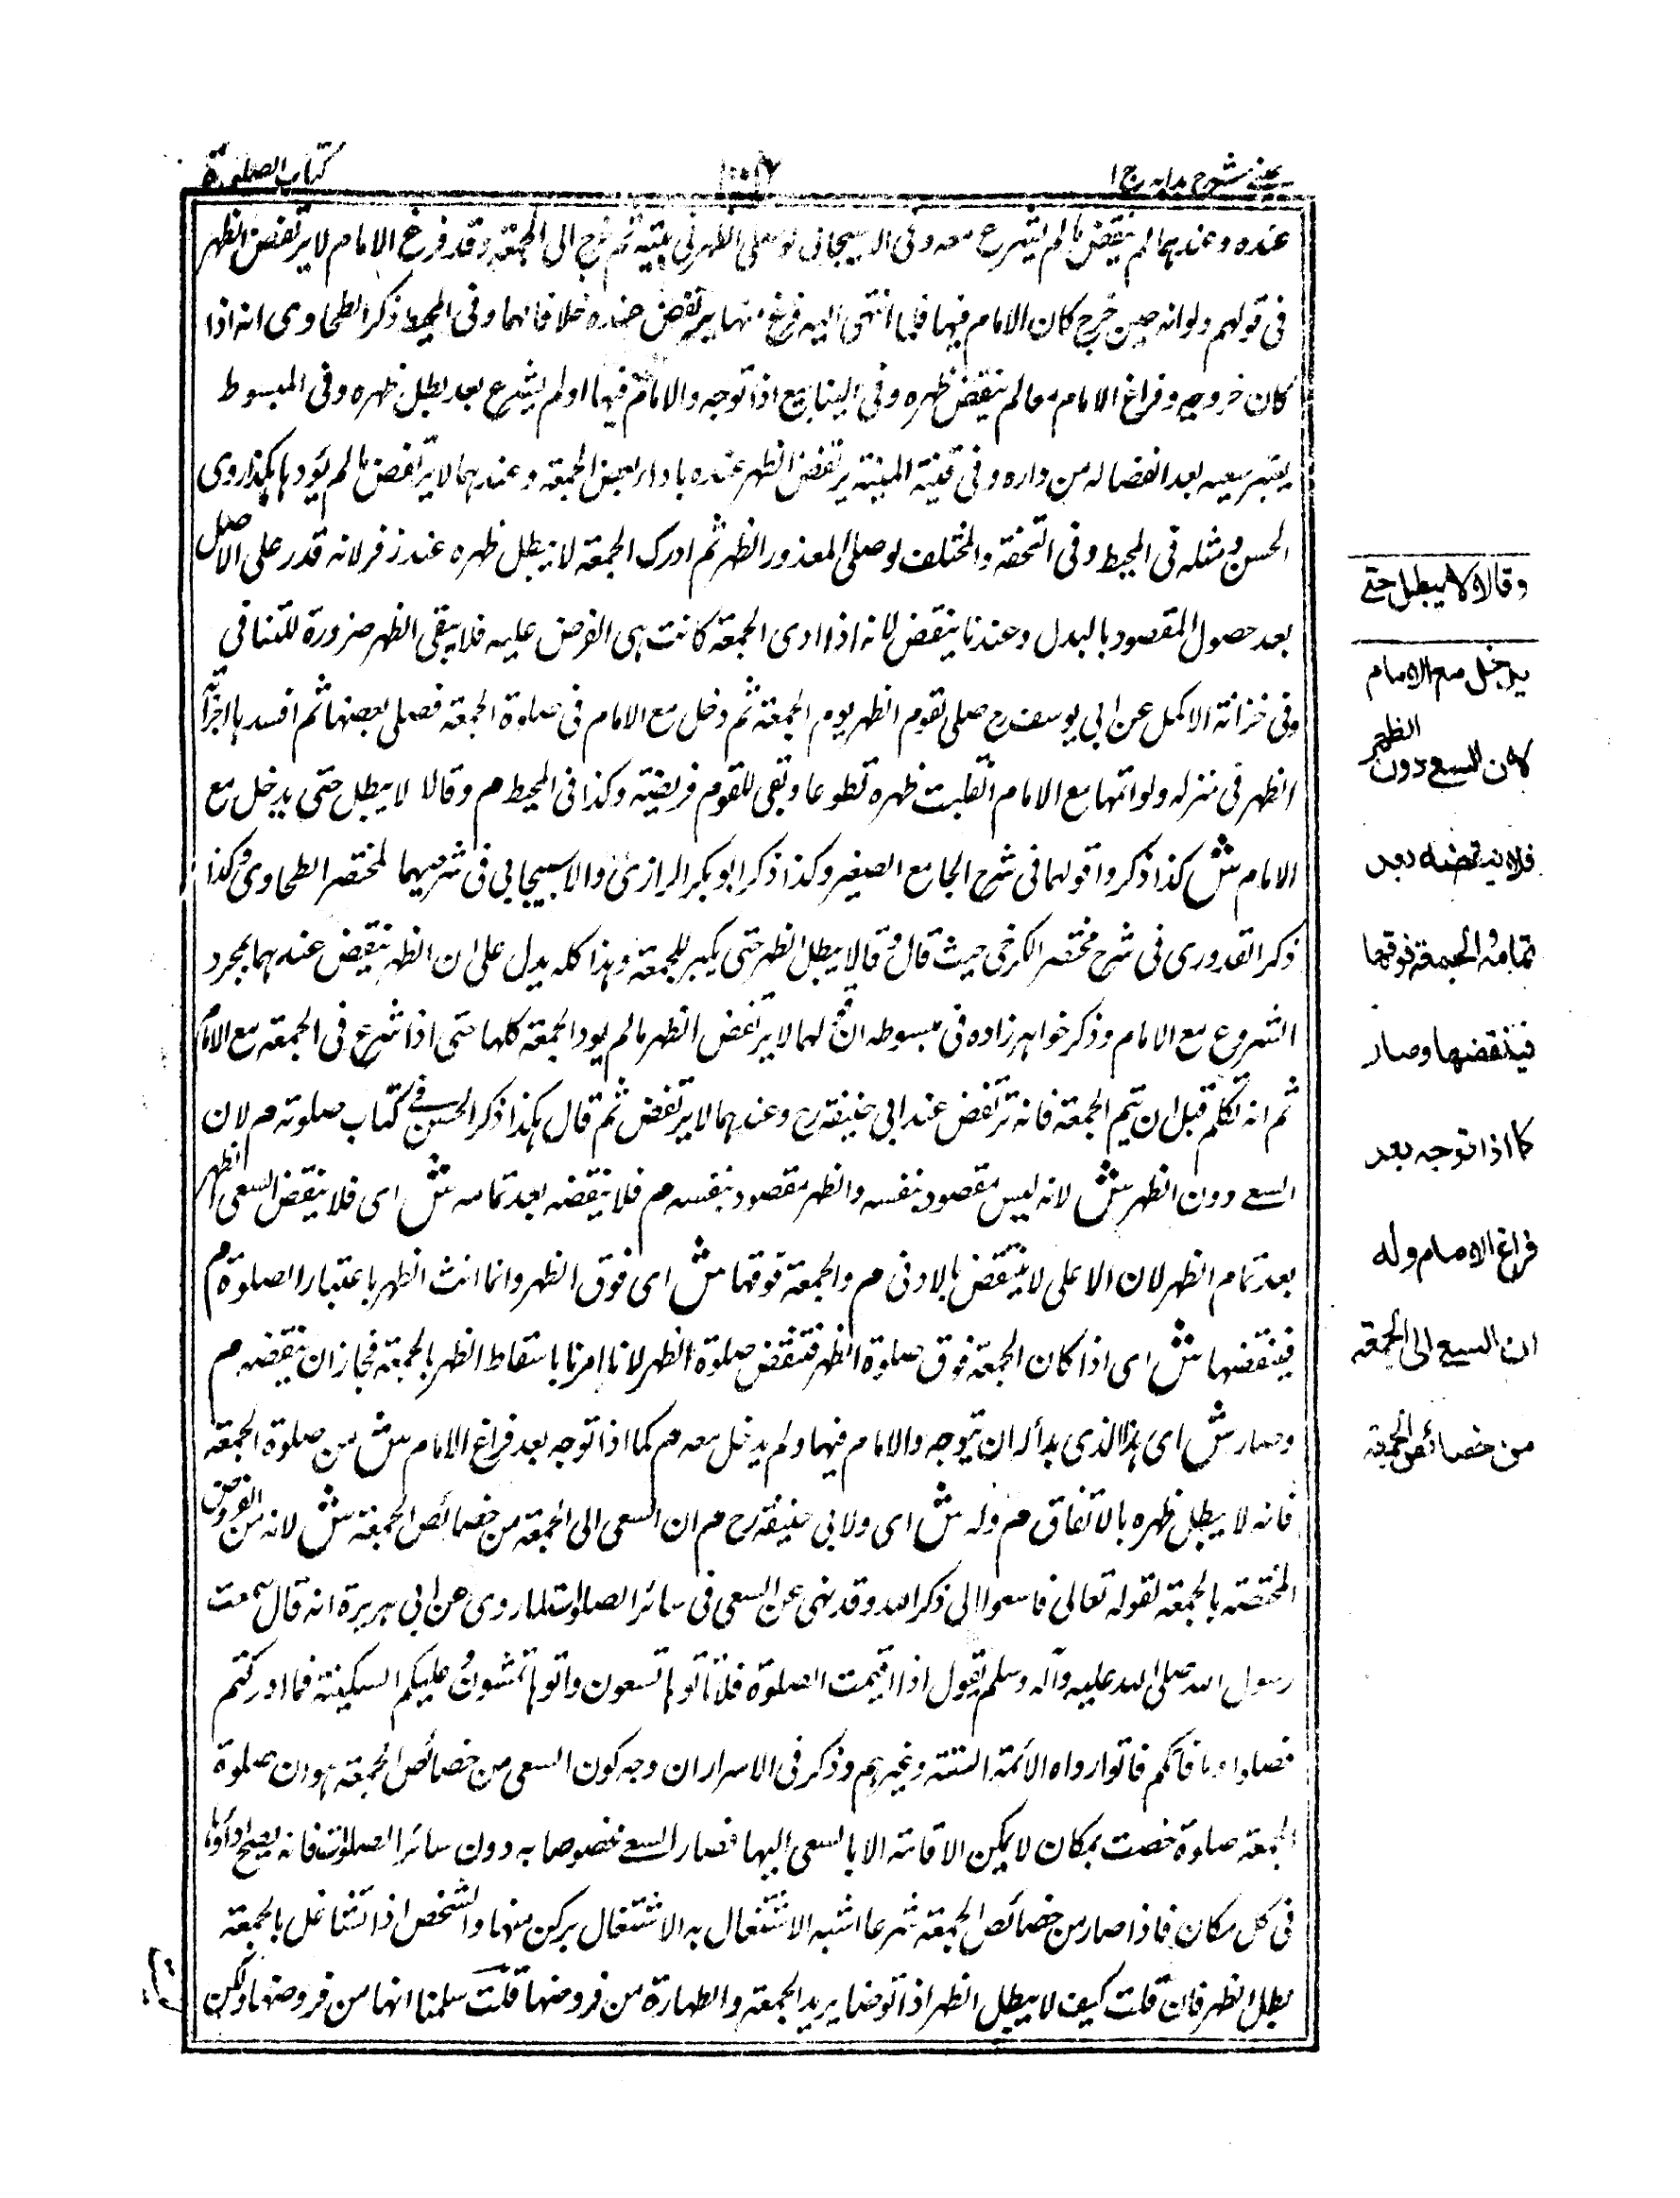 عینی شرح هدایه ج ١
١٠٠٢
كتاب الصلوة
عنده وعندهما لم ينقض ما لم يشرع معه وفى الاسبيجابى لو صلى الظهر فى بيته ثم خرج الى الجمعة وقد فرغ الامام لا يرتفض الظهر
فى قولهم ولو انه حين خرج كان الامام فيها فلما انتهى اليه فرغ منها يرتفض عنده خلافا لهما وفى المحيط ذكر الطحاوى انه اذا
كان خروجه وفراغ الامام معا لم ينقض ظهره وفى الينابيع اذا توجه والامام فيها او لم يشرع بعد بطل ظهره وفى المبسوط
يعتبر سعيه بعد انفصاله من داره وفى قنية المنية يرتفض الظهر عنده باداء بعض الجمعة وعندهما لا يرتفض ما لم يؤدها هكذا روى
الحسن ومثله فى المحيط وفى التحفة والمختلف لو صلى المعذور الظهر ثم ادرك الجمعة لا يبطل ظهره عند زفر لانه قدر على الاصل
بعد حصول المقصود بالبدل وعندنا ينقض لانه اذا ادى الجمعة كانت هى الفرض عليه فلا يبقى الظهر ضرورة للتنافى
وفى خزانة الاكمل عن ابى يوسف رح صلى بقوم الظهر يوم الجمعة ثم دخل مع الامام فى صلوة الجمعة فصلى بعضها ثم افسدها اجزأته
الظهر فى منزله ولو اتمها مع الامام انقلبت ظهره تطوعا وبقى للقوم فريضة وكذا فى المحيط م وقالا لا يبطل حتى يدخل مع
الامام ش كذا ذكروا قولهما فى شرح الجامع الصغير وكذا ذكر ابو بكر الرازى والاسبيجابى فى شرحيهما لمختصر الطحاوى وكذا
ذكر القدورى فى شرح مختصر الكرخى حيث قال وقالا يبطل الظهر حتى يكبر للجمعة وهذا كله يدل على ان الظهر ينقض عندهما بمجرد
الشروع مع الامام وذكر خواهر زاده فى مبسوطه ان قولهما لا يرتفض الظهر ما لم يود الجمعة كلها حتى اذا شرع فى الجمعة مع الامام
ثم انه تكلم قبل ان يتم الجمعة فانه ترتفض عند ابى حنيفة رح وعندهما لا يرتفض ثم قال هكذا ذكر الحسن فى كتاب صلوته م لان
السعى دون الظهر ش لانه ليس مقصود بنفسه والظهر مقصود بنفسه م فلا ينقضه بعد تمامه ش اى فلا ينقض السعى الظهر
بعد تمام الظهر لان الاعلى لا ينتقض بالادنى م والجمعة فوقها ش اى فوق الظهر وانما انث الظهر باعتبار الصلوة م
فينقضها ش اى اذا كان الجمعة فوق صلوة الظهر فتنقض صلوة الظهر لانا امرنا باسقاط الظهر بالجمعة فجاز ان ينقضه م
وصار ش اى هذا الذى بدأ له ان يتوجه والامام فيها ولم يدخل معه م كما اذا توجه بعد فراغ الامام ش من صلوة الجمعة
فانه لا يبطل ظهره بالاتفاق م وله ش اى ولابى حنيفة رح م ان السعى الى الجمعة من خصائص الجمعة ش لانه من الفروض
المختصة بالجمعة لقوله تعالى فاسعوا الى ذكر الله وقد نهى عن السعى فى سائر الصلوات لما روى عن ابى هريرة انه قال سمعت
رسول الله صلى الله عليه وآله وسلم يقول اذا اقيمت الصلوة فلا تأتوها تسعون واتوها تمشون وعليكم السكينة فما ادركتم
فصلوا وما فاتكم فاتموا رواه الائمة الستة وغيرهم وذكر فى الاسرار ان وجه كون السعى من خصائص الجمعة هو ان صلوة
الجمعة صلوة خصت بمكان لا يمكن الاقامة الا بالسعى اليها فصار السعى مخصوصا به دون سائر الصلوات فانه يصح اداؤها
فى كل مكان فاذا صار من خصائص الجمعة شرعا اشبه الاشتغال به الاشتغال بركن منها والشخص اذا تشاغل بالجمعة
بطل الظهر فان قلت كيف لا يبطل الظهر اذا توضا يريد الجمعة والطهارة من فروضها قلت سلمنا انها من فروضها ولكن
وقالا لا يبطل حتى
يدخل مع الامام
لان السعى دون الظهر
فلا ينقضه بعد
تمامه والجمعة فوقها
فينقضها وصار
كما اذا توجه بعد
فراغ الامام وله
ان السعى الى الجمعة
من خصائص الجمعة